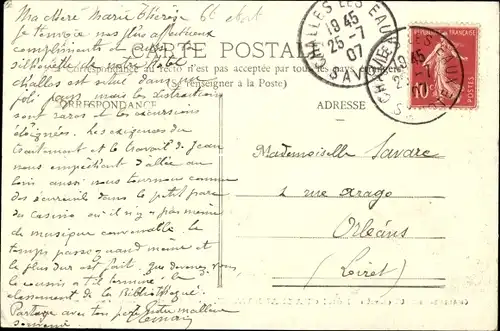 Ma chère Marie Thérèse
Je t'envoie nos plus affectueux
compliments et
silhouette de notre Hôtel
Challes est situé dans un
joli pays mais les distractions
sont rares et les excursions
éloignées. Les exigences du
traitement et le travail de Jean
nous empêchant d'aller au
loin aussi nous tournons comme
des écureuils dans le petit parc
du Casino où il n'y a pas même
de musique convenable. Le
temps passe quand même et
le plus dur est fait. Que devenez-vous
le cousin a-t-il terminé le
classement de la Bibliothèque.
Partage avec ton père notre meilleur
souvenir
CARTE POSTALE
Correspondance au recto n'est pas acceptée par tous les pays
(Se renseigner à la Poste)
CORRESPONDANCE
ADRESSE
CHALLES LES EAUX
19 45
25 -7
07
SAVOIE
CHALLES LES EAUX
19 45
07
POSTES
10
Mademoiselle Lavare
2 rue Arago
Orléans
(Loiret)